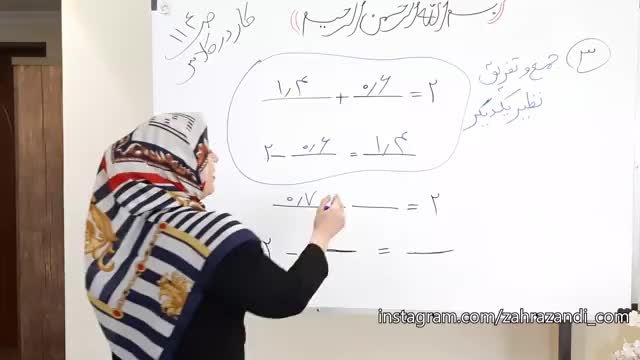 بسم الله الرحمن الرحیم
کار در کلاس
ص ۱۱۴
۳
جمع و تفریق
نظیر یکدیگر
۱٫۴ + ۰٫۶ = ۲
۲ - ۰٫۶ = ۱٫۴
۰٫۷ ___ = ۲
۲ ___ = ___
instagram.com/zahrazandi_com